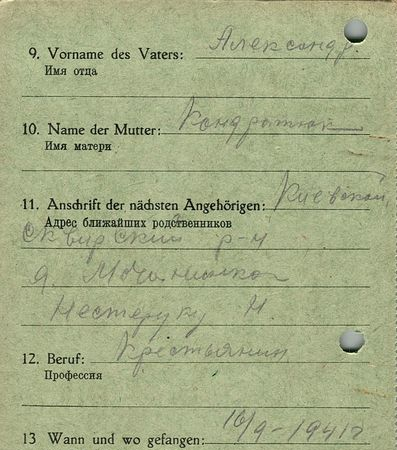 9. Vorname des Vaters: Александр.
Имя отца
10. Name der Mutter: Кондратюк
Имя матери
11. Anschrift der nächsten Angehörigen: Киевской,
Адрес ближайших родственников
Сквирский р-н
д.
Нестеруку Н.
12. Beruf: Крестьянин
Профессия
16/9-1941г
13 Wann und wo gefangen: